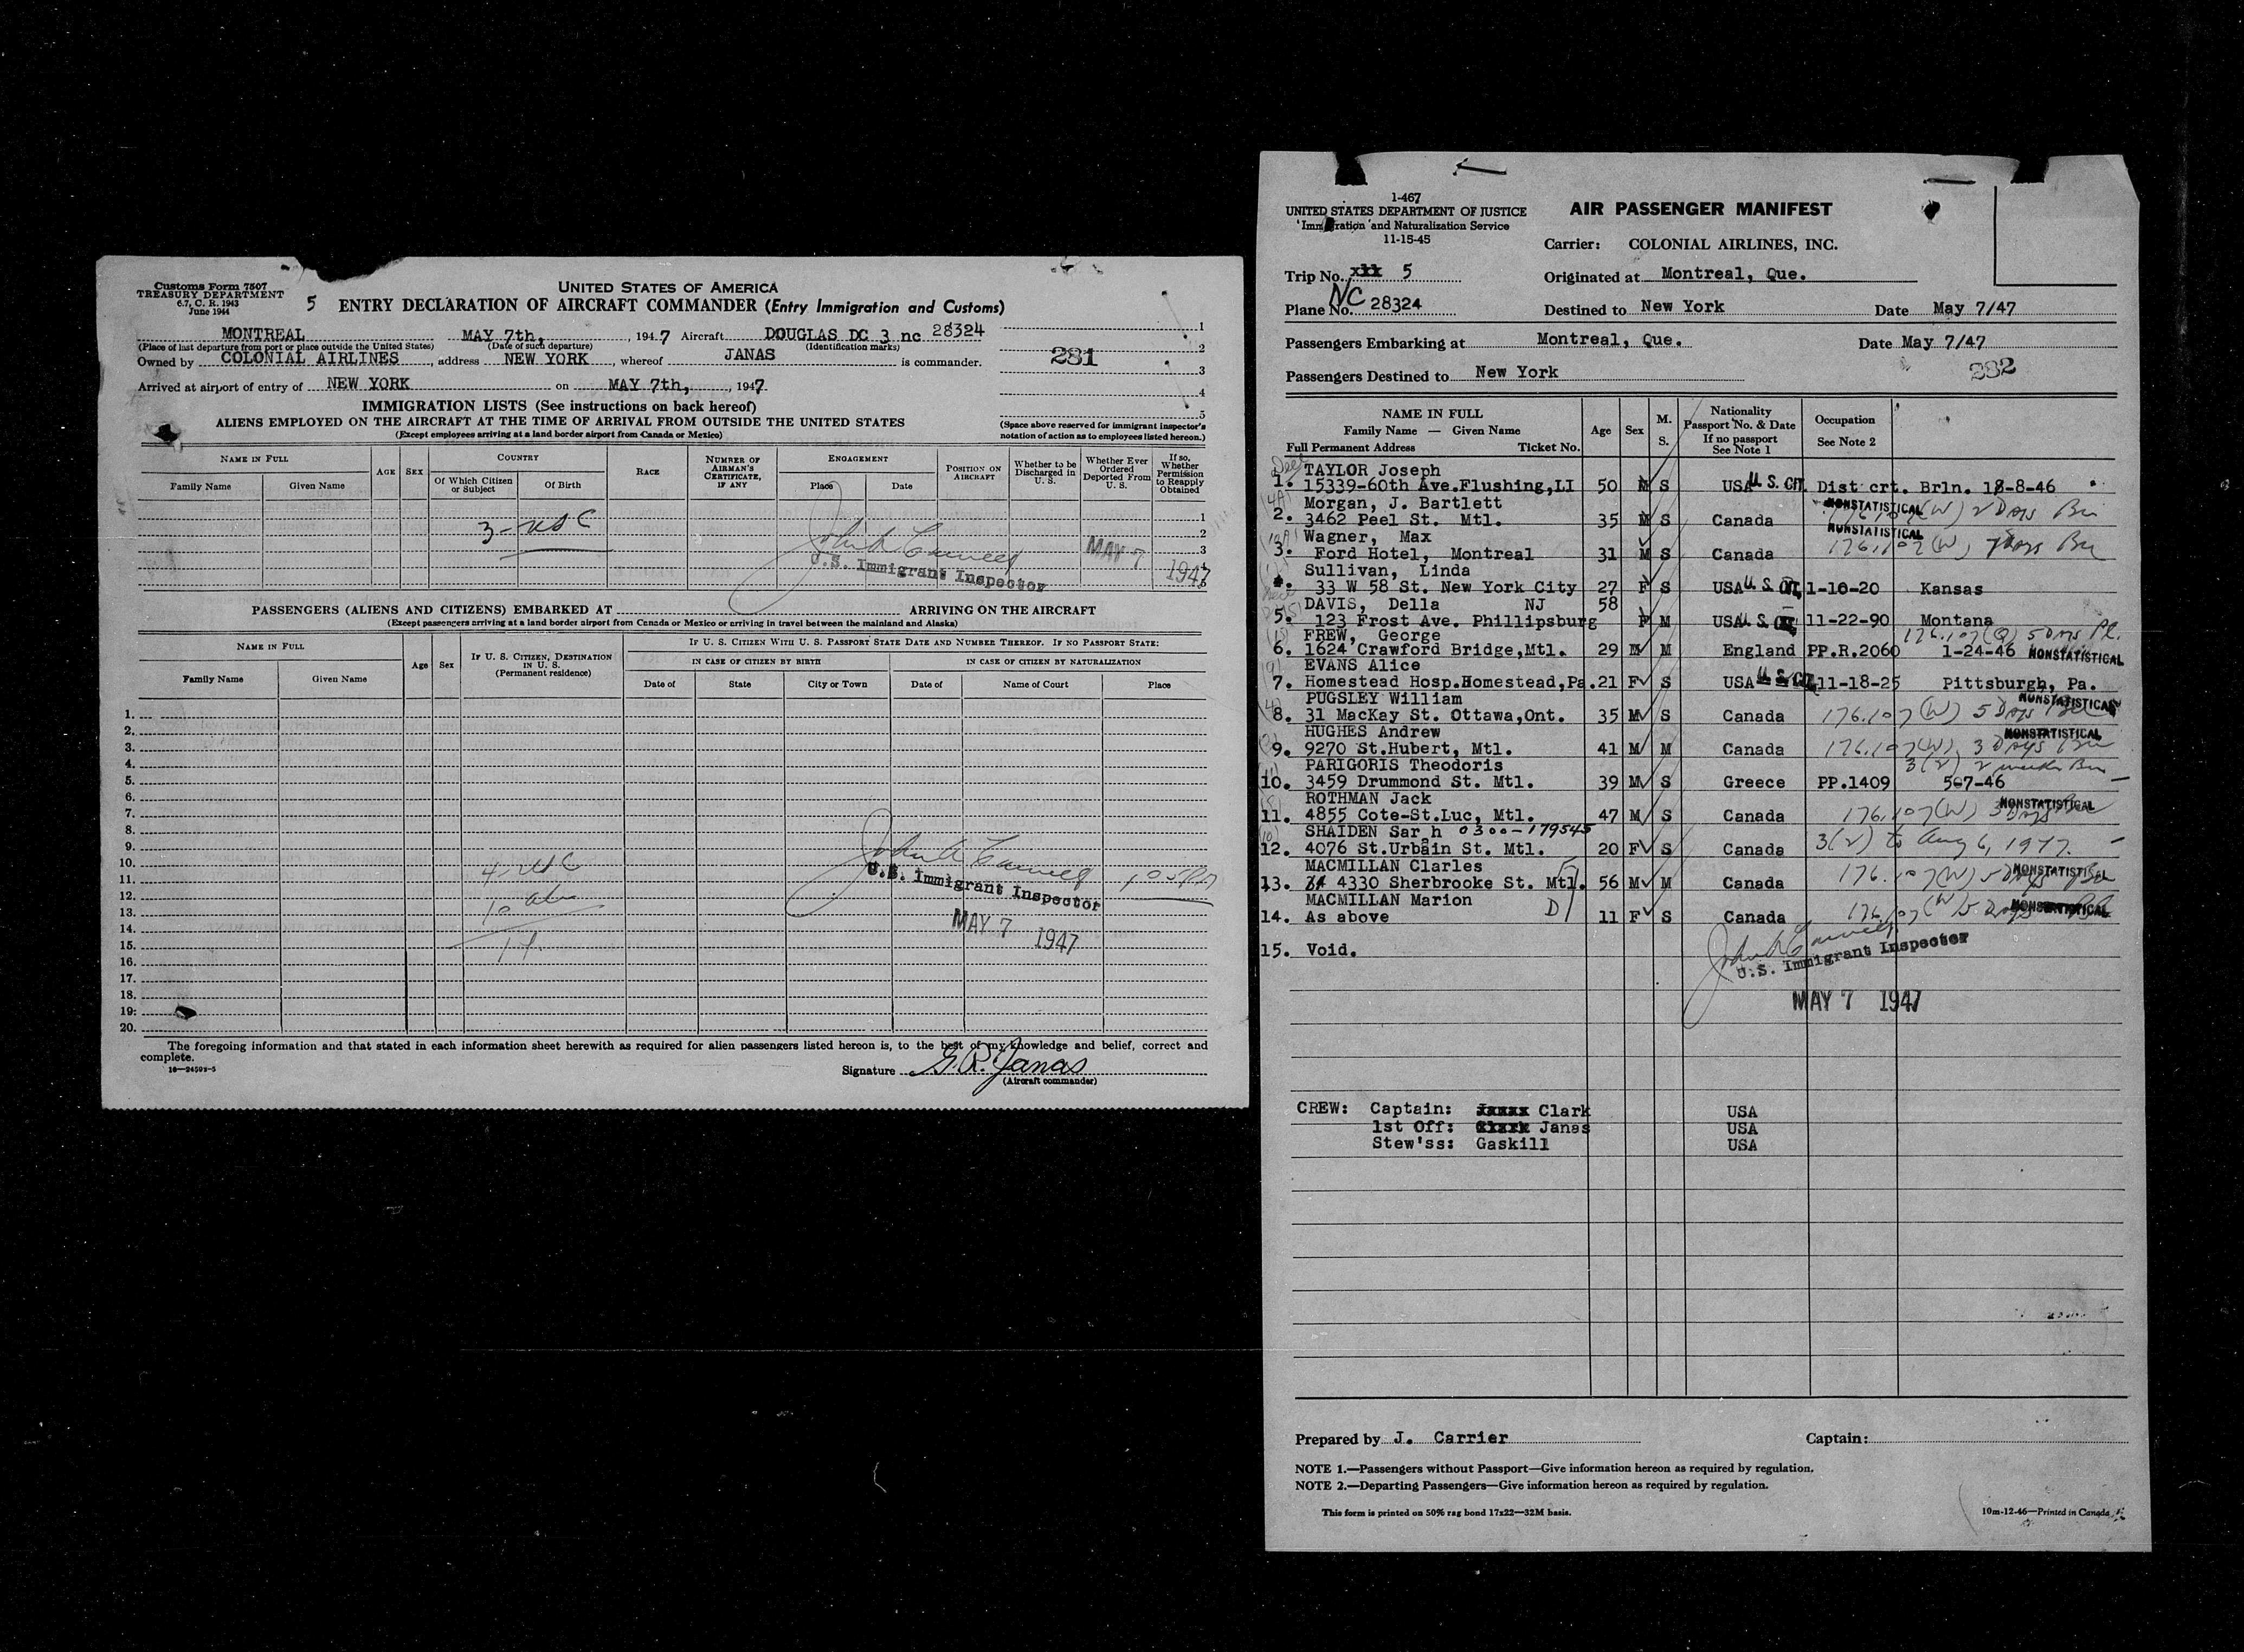 Customs Form 7507
TREASURY DEPARTMENT
6.7, C. R. 1943
June 1944
5
UNITED STATES OF AMERICA
ENTRY DECLARATION OF AIRCRAFT COMMANDER (Entry Immigration and Customs)
MONTREAL MAY 7th, , 1947 Aircraft DOUGLAS DC 3 nc 28324
(Place of last departure from port or place outside the United States) (Date of such departure) (Identification marks)
Owned by COLONIAL AIRLINES , address NEW YORK , whereof JANAS is commander.
Arrived at airport of entry of NEW YORK on MAY 7th, , 1947.
1
2
281
3
4
5
(Space above reserved for immigrant inspector's notation of action as to employees listed hereon.)
IMMIGRATION LISTS (See instructions on back hereof)
ALIENS EMPLOYED ON THE AIRCRAFT AT THE TIME OF ARRIVAL FROM OUTSIDE THE UNITED STATES
(Except employees arriving at a land border airport from Canada or Mexico)
NAME IN FULL AGE SEX COUNTRY RACE NUMBER OF AIRMAN'S CERTIFICATE, IF ANY ENGAGEMENT POSITION ON AIRCRAFT Whether to be Discharged in U. S. Whether Ever Ordered Deported From U. S. If so, Whether Permission to Reapply Obtained
Family Name Given Name Of Which Citizen or Subject Of Birth Place Date
1
3-USC
2
3
MAY 7 1947
U.S. Immigrant Inspector
PASSENGERS (ALIENS AND CITIZENS) EMBARKED AT ARRIVING ON THE AIRCRAFT
(Except passengers arriving at a land border airport from Canada or Mexico or arriving in travel between the mainland and Alaska)
NAME IN FULL Age Sex IF U. S. CITIZEN, DESTINATION IN U. S. (Permanent residence) IF U. S. CITIZEN WITH U. S. PASSPORT STATE DATE AND NUMBER THEREOF. IF NO PASSPORT STATE:
IN CASE OF CITIZEN BY BIRTH IN CASE OF CITIZEN BY NATURALIZATION
Family Name Given Name Date of State City or Town Date of Name of Court Place
1.
2.
3.
4.
5.
6.
7.
8.
9.
10. 4-USC
11. U.S. Immigrant Inspector
12. 10
13. MAY 7 1947
14.
15.
16.
17.
18.
19.
20.
The foregoing information and that stated in each information sheet herewith as required for alien passengers listed hereon is, to the best of my knowledge and belief, correct and
complete.
16—24593-5
Signature G.R. Janas
(Aircraft commander)
1-467
UNITED STATES DEPARTMENT OF JUSTICE
Immigration and Naturalization Service
11-15-45
AIR PASSENGER MANIFEST
Carrier: COLONIAL AIRLINES, INC.
Trip No. xxx 5 Originated at Montreal, Que.
Plane No. NC 28324 Destined to New York Date May 7/47
Passengers Embarking at Montreal, Que. Date May 7/47
Passengers Destined to New York
282
NAME IN FULL Age Sex M. S. Nationality Passport No. & Date If no passport See Note 1 Occupation See Note 2
Family Name — Given Name
Full Permanent Address Ticket No.
TAYLOR Joseph
1. 15339-60th Ave.Flushing,LI 50 M S USA U.S. CIT. Dist crt. Brln. 18-8-46
Morgan, J. Bartlett NONSTATISTICAL
2. 3462 Peel St. Mtl. 35 M S Canada 176.107(W) 2 Days Bu
Wagner, Max NONSTATISTICAL
3. Ford Hotel, Montreal 31 M S Canada 176.107(W) Days Bu
Sullivan, Linda
4. 33 W 58 St. New York City 27 F S USA U.S. CIT. 1-10-20 Kansas
DAVIS, Della NJ 58
5. 123 Frost Ave. Phillipsburg F M USA U.S. CIT. 11-22-90 Montana
FREW, George 176.107(Q) 5 Days Pl.
6. 1624 Crawford Bridge,Mtl. 29 M M England PP.R.2060 1-24-46 NONSTATISTICAL
EVANS Alice
7. Homestead Hosp.Homestead,Pa. 21 F S USA U.S. CIT. 11-18-25 Pittsburgh, Pa.
PUGSLEY William NONSTATISTICAL
8. 31 MacKay St. Ottawa,Ont. 35 M S Canada 176.107(W) 5 Days
HUGHES Andrew NONSTATISTICAL
9. 9270 St.Hubert, Mtl. 41 M M Canada 176.107(W) 3 Days Bu
PARIGORIS Theodoris 3(2) 2 weeks Bu
10. 3459 Drummond St. Mtl. 39 M S Greece PP.1409 567-46
ROTHMAN Jack NONSTATISTICAL
11. 4855 Cote-St.Luc, Mtl. 47 M S Canada 176.107(W) 3 Days
SHAIDEN Sar h 0300-179545
12. 4076 St.Urbain St. Mtl. 20 F S Canada 3(2) to Aug 6, 1947.
MACMILLAN Clarles NONSTATISTICAL
13. 4330 Sherbrooke St. Mtl. 56 M M Canada 176.107(W) 5 Days
MACMILLAN Marion
14. As above 11 F S Canada 176.107(W) 5 Days NONSTATISTICAL
15. Void.
U.S. Immigrant Inspector
MAY 7 1947
CREW: Captain: Clark USA
1st Off: Janas USA
Stew'ss: Gaskill USA
Prepared by J. Carrier Captain:
NOTE 1.—Passengers without Passport—Give information hereon as required by regulation.
NOTE 2.—Departing Passengers—Give information hereon as required by regulation.
This form is printed on 50% rag bond 17x22—32M basis.
10m-12-46—Printed in Canada